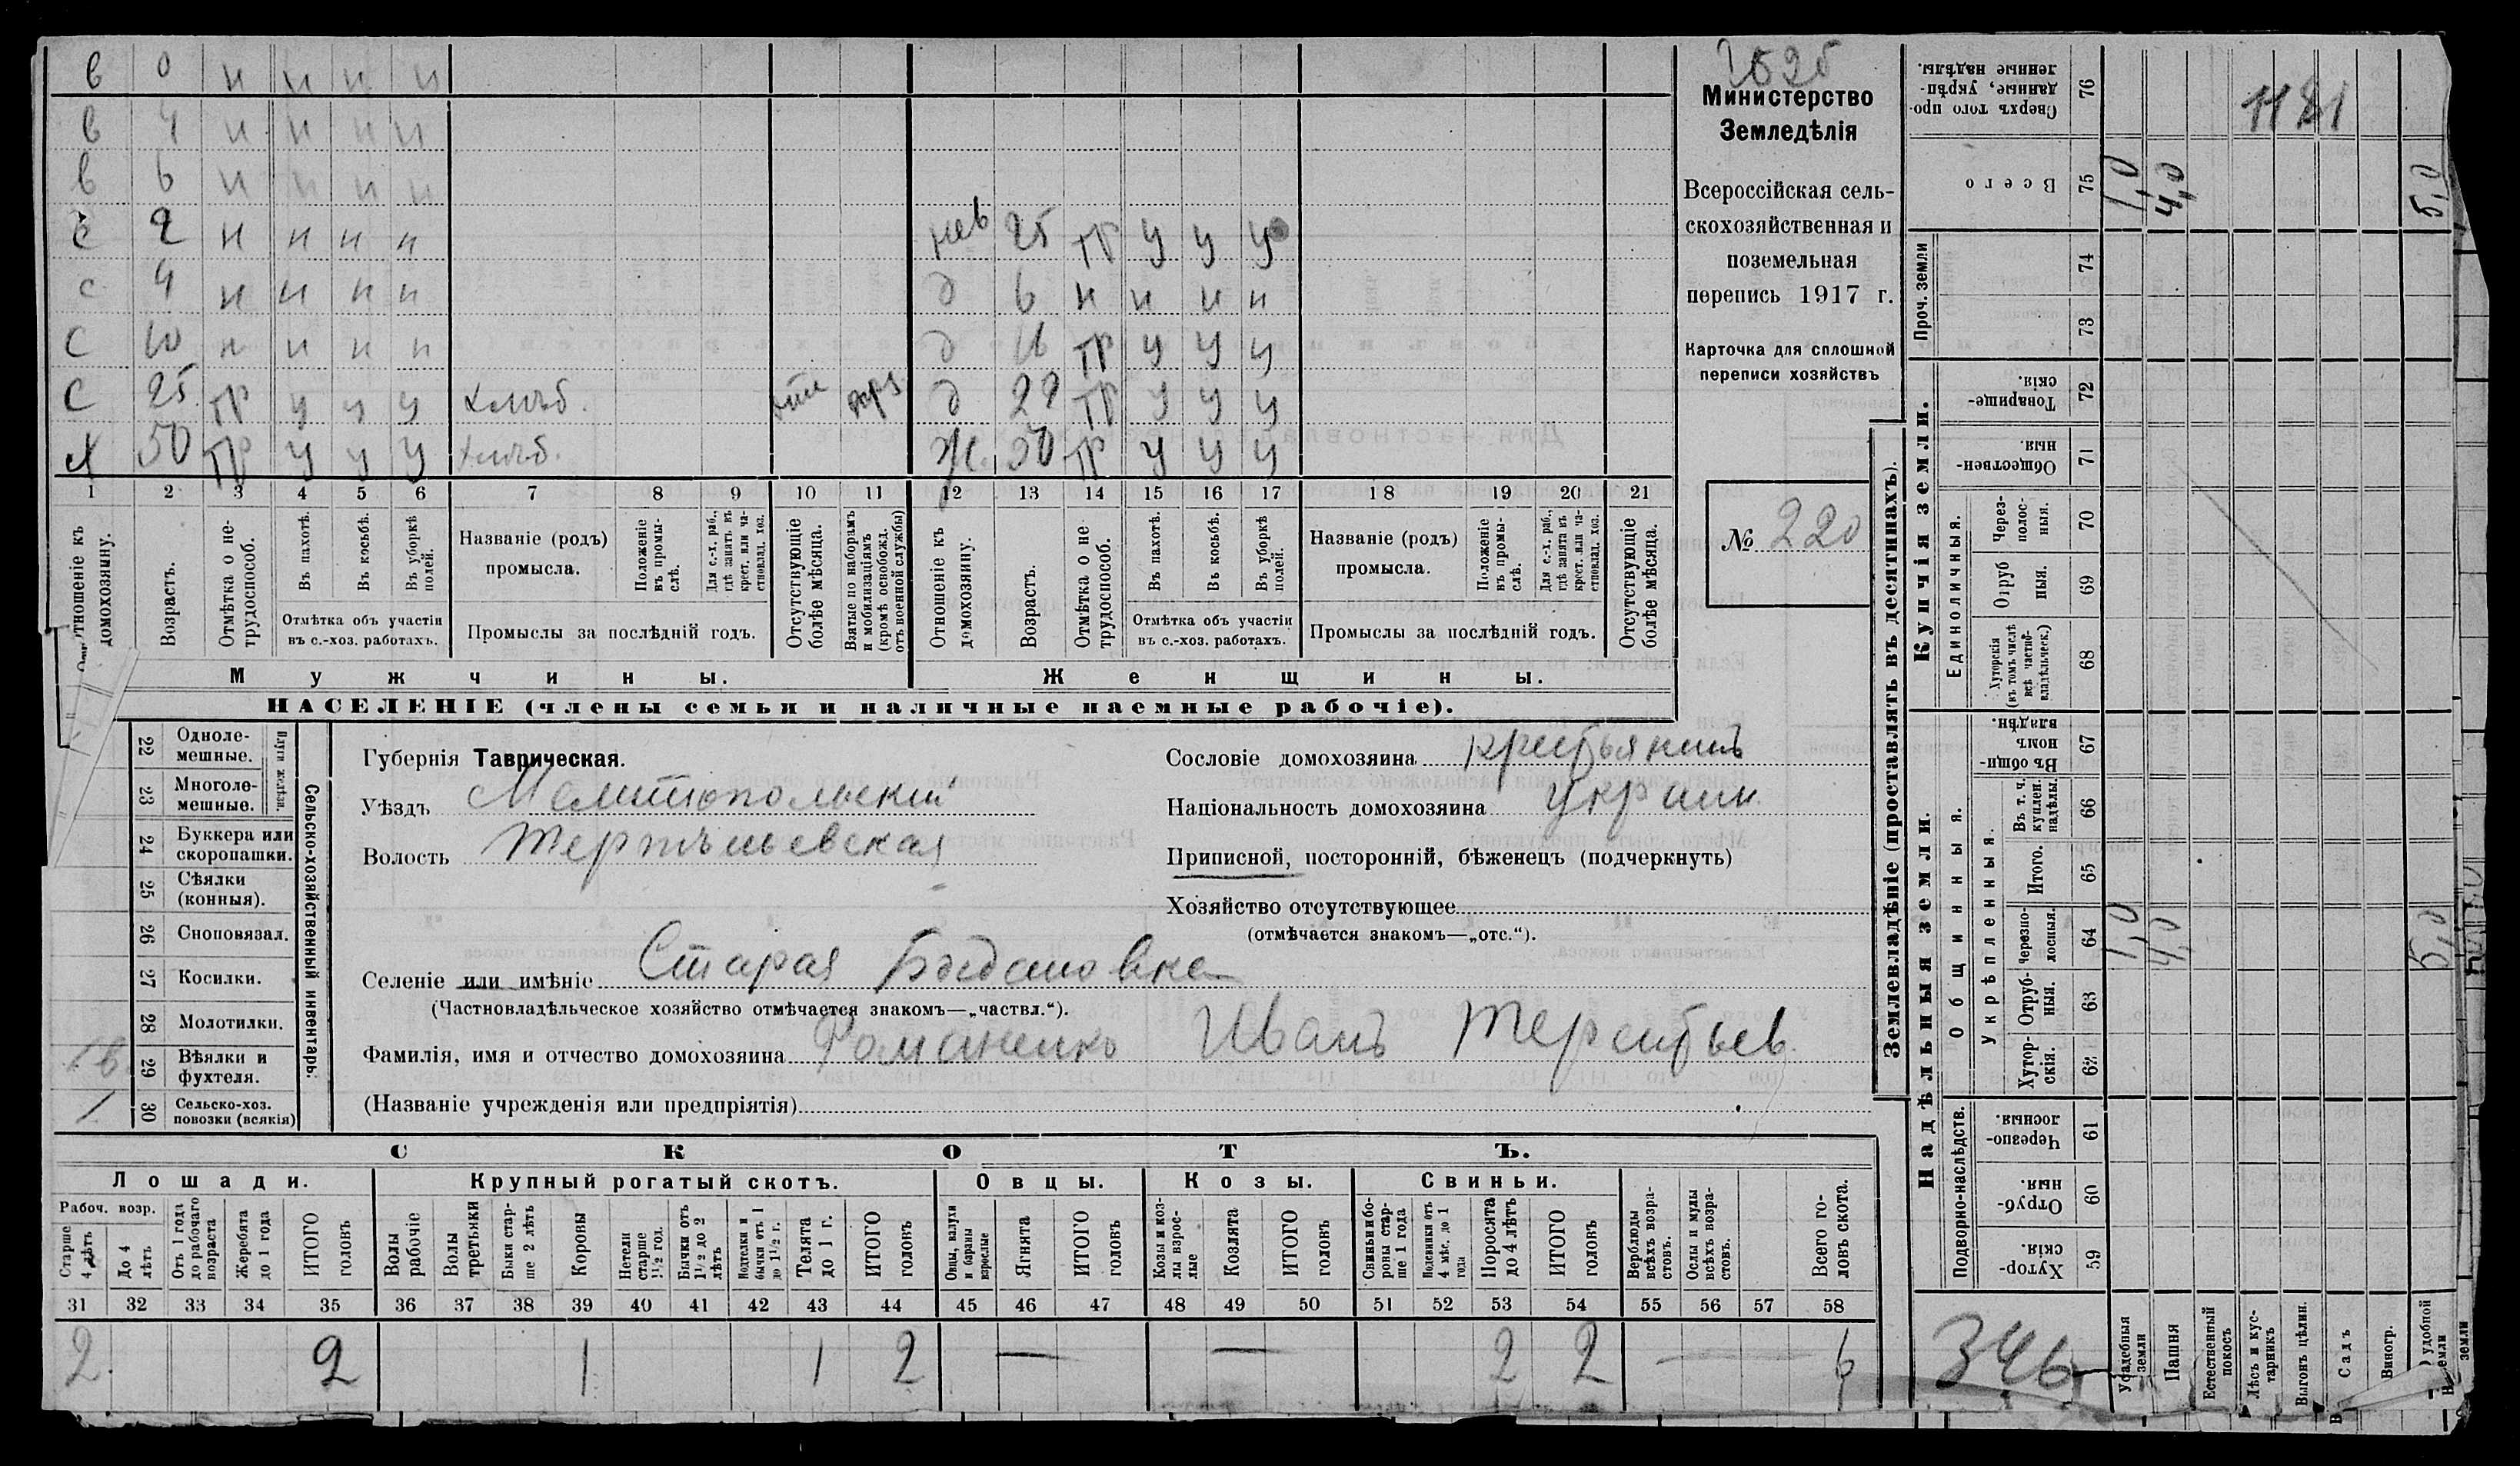 в 0 н н н н
в 4 н н н н
в 6 н н н н
с 2 н н н н нев 25 тр у у у
с 4 н н н н д 6 н н н н
с 10 н н н н д 16 тр у у у
с 25 тр у у у хлѣб. д 22 тр у у у
х 50 тр у у у хлѣб. ж. 50 тр у у у
1 2 3 4 5 6 7 8 9 10 11 12 13 14 15 16 17 18 19 20 21
Отношеніе къ домохозяину.
Возрастъ.
Отмѣтка о не-
трудоспособ.
Въ пахотѣ.
Въ косьбѣ.
Въ уборкѣ
полей.
Отмѣтка объ участіи
въ с.-хоз. работахъ.
Названіе (родъ)
промысла.
Положеніе
въ промы-
слѣ.
Для с.-х. раб.,
гдѣ занятъ въ
крест. или ча-
стновлад. хоз.
Промыслы за послѣдній годъ.
Отсутствующіе
болѣе мѣсяца.
Взятые по наборамъ
и мобилизаціямъ
(кромѣ освобожд.
отъ военной службы)
Отношеніе къ
домохозяину.
Возрастъ.
Отмѣтка о не
трудоспособ.
Въ пахотѣ.
Въ косьбѣ.
Въ уборкѣ
полей.
Отмѣтка объ участіи
въ с.-хоз. работахъ.
Названіе (родъ)
промысла.
Положеніе
въ промы-
слѣ.
Для с.-х. раб.,
гдѣ занята въ
крест. или ча-
стновлад. хоз.
Промыслы за послѣдній годъ.
Отсутствующіе
болѣе мѣсяца.
Мужчины.
Женщины.
НАСЕЛЕНІЕ (члены семьи и наличные наемные рабочіе).
Министерство
Земледѣлія
Всероссійская сель-
скохозяйственная и
поземельная
перепись 1917 г.
Карточка для сплошной
переписи хозяйствъ
№ 220
22 Одноле-
мешные.
23 Многоле-
мешные.
Плуги желѣзн.
24 Буккера или
скоропашки.
25 Сѣялки
(конныя).
26 Сноповязал.
27 Косилки.
28 Молотилки.
29 Вѣялки и
фухтеля.
30 Сельско-хоз.
повозки (всякія)
1
Сельско-хозяйственный инвентарь.
Губернія Таврическая.
Уѣздъ Мелитопольскій
Волость Терпѣньевская
Селеніе или имѣніе Старая Богдановка
(Частновладѣльческое хозяйство отмѣчается знакомъ—„частвл.“).
Фамилія, имя и отчество домохозяина Романенко Иванъ Терентьев
(Названіе учрежденія или предпріятія)
Сословіе домохозяина крестьянинъ
Національность домохозяина украин.
Приписной, посторонній, бѣженец (подчеркнуть)
Хозяйство отсутствующее
(отмѣчается знакомъ—„отс.“).
СКОТЪ.
Лошади.
Крупный рогатый скотъ.
Овцы.
Козы.
Свиньи.
Рабоч. возр.
Старше
4 лѣтъ
До 4
лѣтъ
Отъ 1 года
до рабочаго
возраста
Жеребята
до 1 года
ИТОГО
головъ
Волы
рабочіе
Волы
третьяки
Быки стар-
ше 2 лѣтъ
Коровы
Нетели
старше
1½ год.
Бычки отъ
1½ до 2
лѣтъ
Подтелки и
бычки отъ 1
до 1½ г.
Телята
до 1 г.
ИТОГО
головъ
Овцы, валухи
и бараны
взрослые
Ягнята
ИТОГО
головъ
Козы и коз-
лы взрос-
лые
Козлята
ИТОГО
головъ
Свиньи и бо-
ровы стар-
ше 1 года
Подсвинки отъ
4 мѣс. до 1
года
Поросята
до 4 лѣтъ
ИТОГО
головъ
Верблюды
всѣхъ возра-
стовъ.
Ослы и мулы
всѣхъ возра-
стовъ.
Всего го-
ловъ скота.
31 32 33 34 35 36 37 38 39 40 41 42 43 44 45 46 47 48 49 50 51 52 53 54 55 56 57 58
2 2 1 1 2 — — 2 2 — 6
Землевладѣніе (проставлять въ десятинахъ).
Надѣльныя земли.
Купчія земли.
Проч. земли
Сверхъ того про-
данные, укрѣп-
ленные надѣлы.
76
1121
Всего
75
1,0
4,0
5,0
74
73
Товарище-
скія.
72
Обществен-
ныя.
71
Единоличныя.
Через-
полос-
ныя.
70
Отруб
ныя.
69
Хуторскія
(въ томъ числѣ
всѣ частно-
владѣльческ.)
68
Общинныя.
Въ общи-
номъ
владѣн.
67
Укрѣпленныя.
Въ т. ч.
куплен.
надѣлы.
66
Итого.
65
Черезпо-
лосныя.
64
1,0
4,0
5,0
Отруб-
ныя.
63
Хутор-
скія.
62
Подворно-наслѣдств.
Черезпо-
лосныя.
61
Отруб-
ныя.
60
Хутор-
скія.
59
346
Усадебныя
земли
Пашня
Естественный
покосъ
Лѣсъ и кус-
тарникъ
Выгонъ цѣлин.
Садъ
Виногр.
удобной
земли
земли